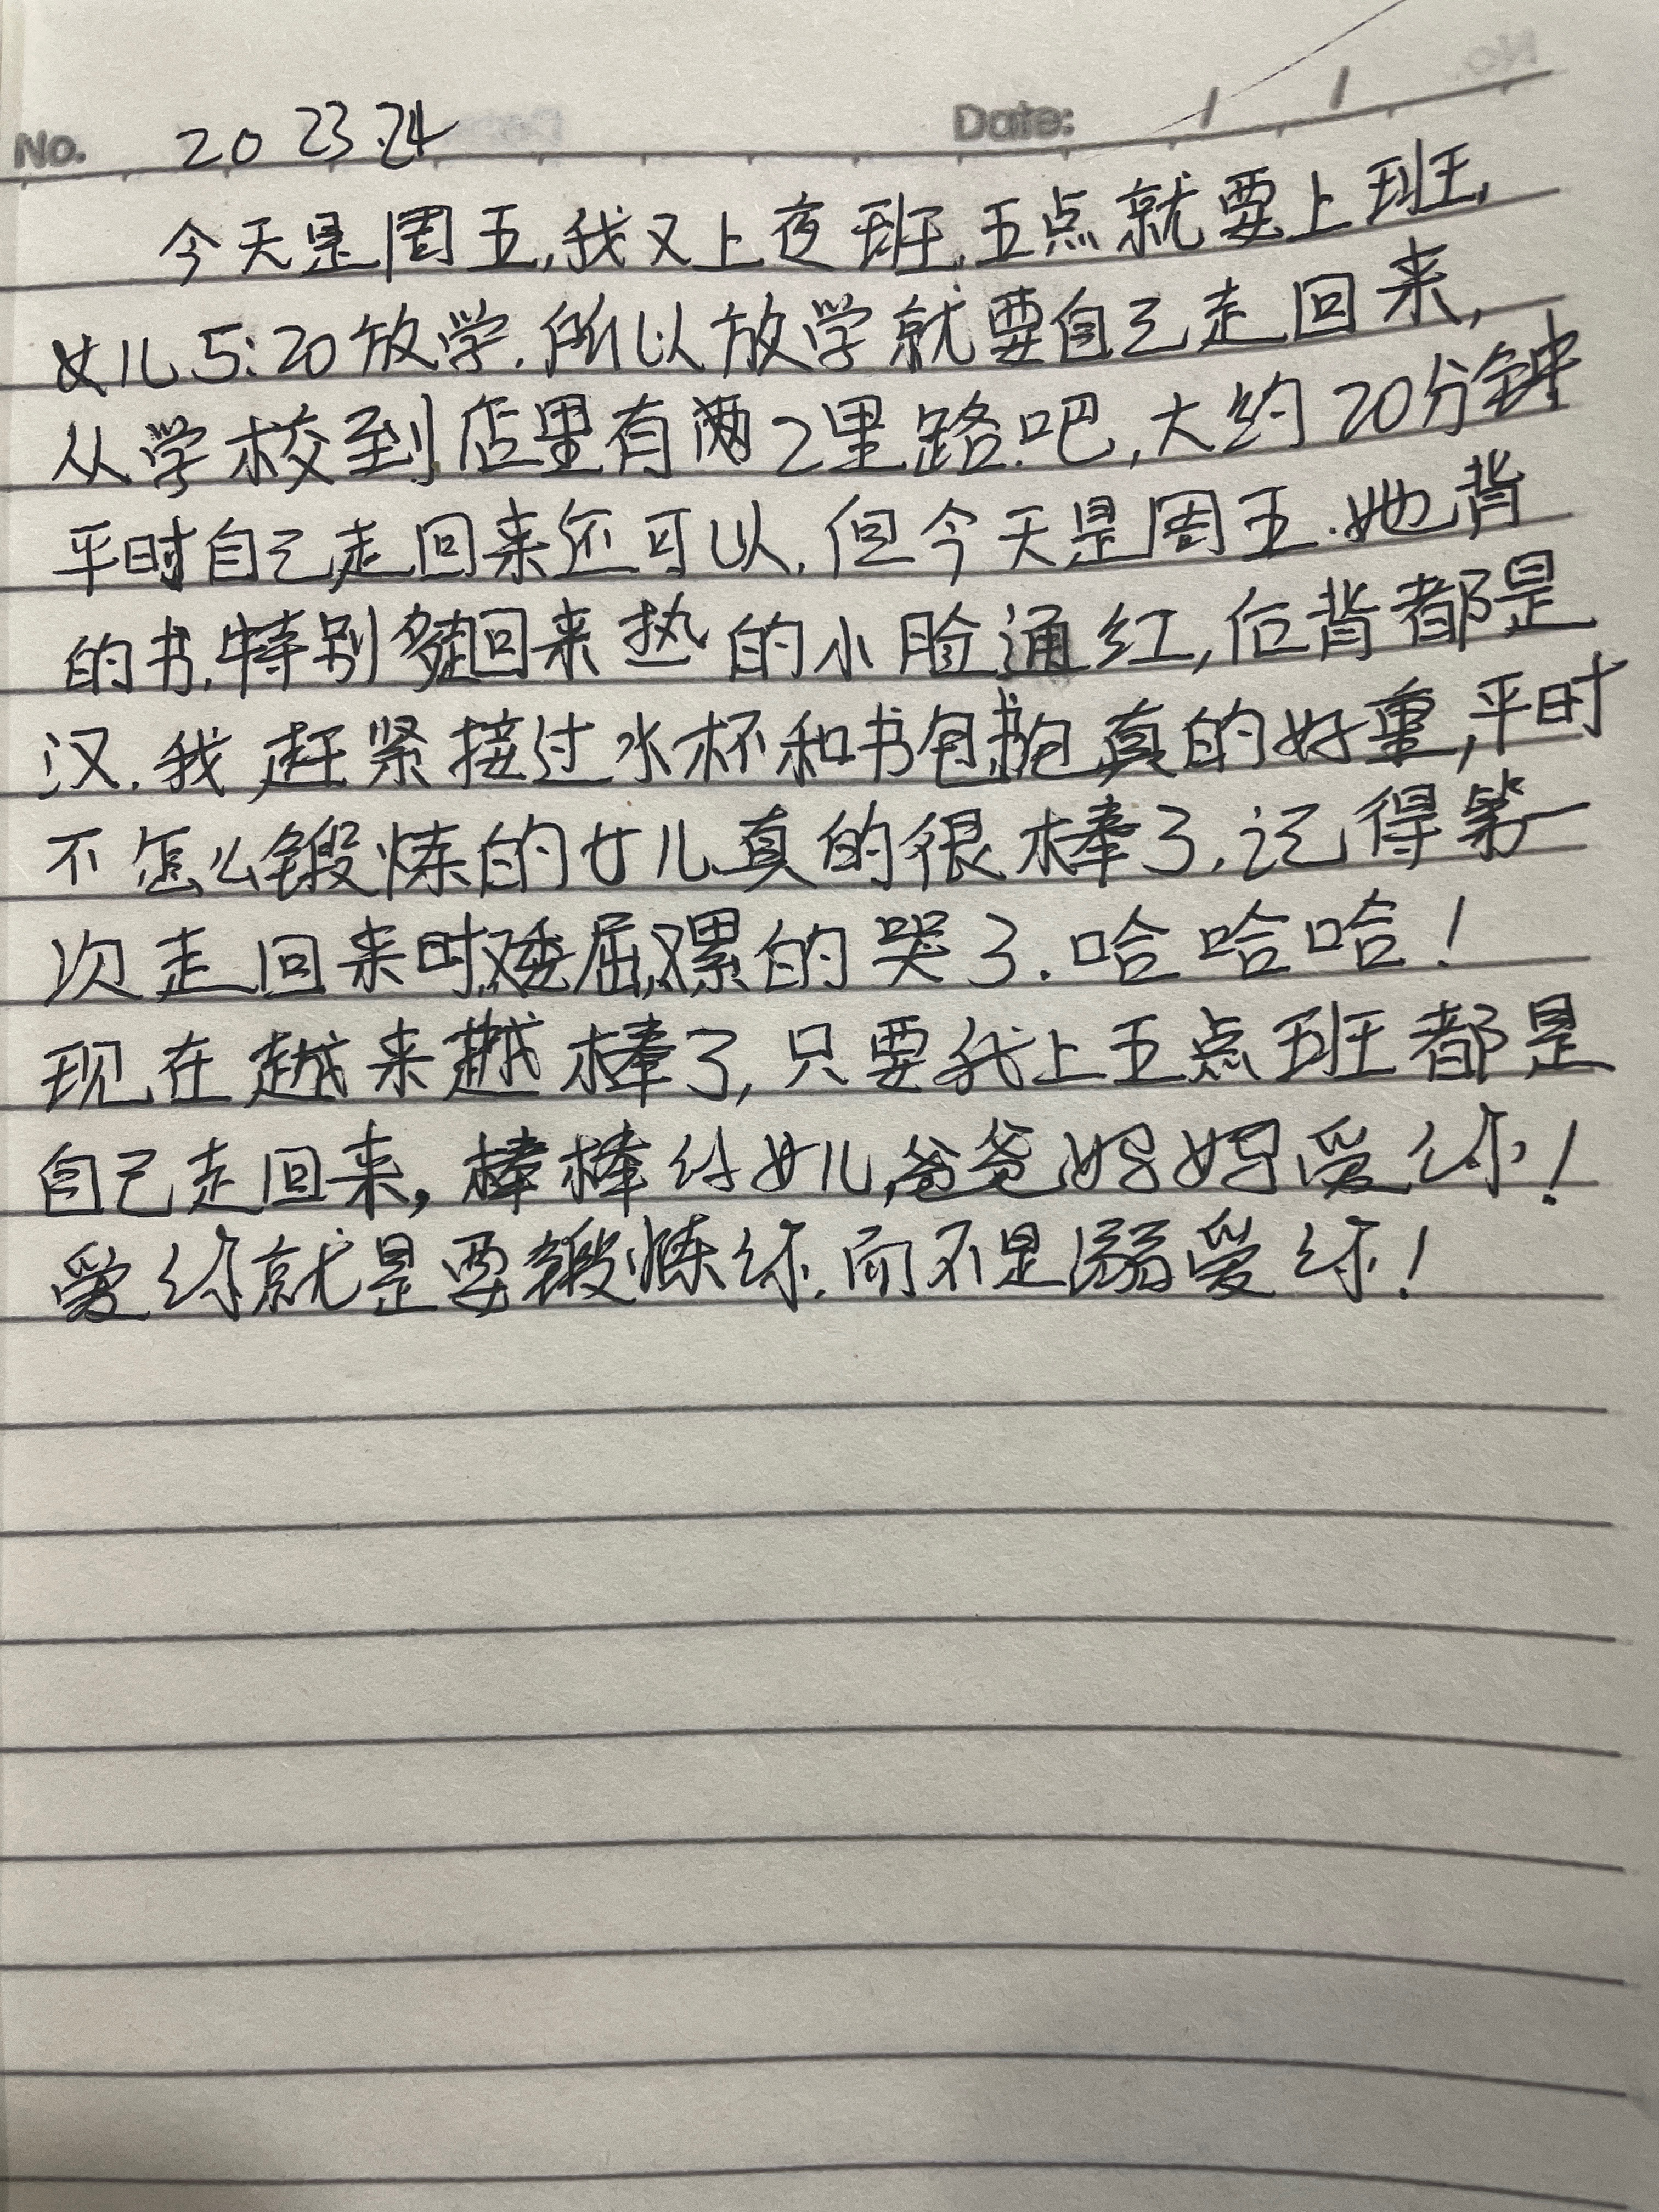 No. 20 23.24 Date: / /
今天是周五,我又上夜班,五点就要上班,
女儿5:20放学.所以放学就要自己走回来,
从学校到店里有两2里路.吧,大约20分钟
平时自己走回来还可以,但今天是周五.她背
的书.特别多走回来热的小脸通红,后背都是
汉.我赶紧接过水杯和书包,书包真的好重,平时
不怎么锻炼的女儿真的很棒了,记得第一
次走回来时,又委屈,又累的哭了.哈哈哈!
现在越来越棒了,只要我上五点班都是
自己走回来,棒棒的女儿,爸爸妈妈爱你!
爱你就是要锻炼你.而不是溺爱你!